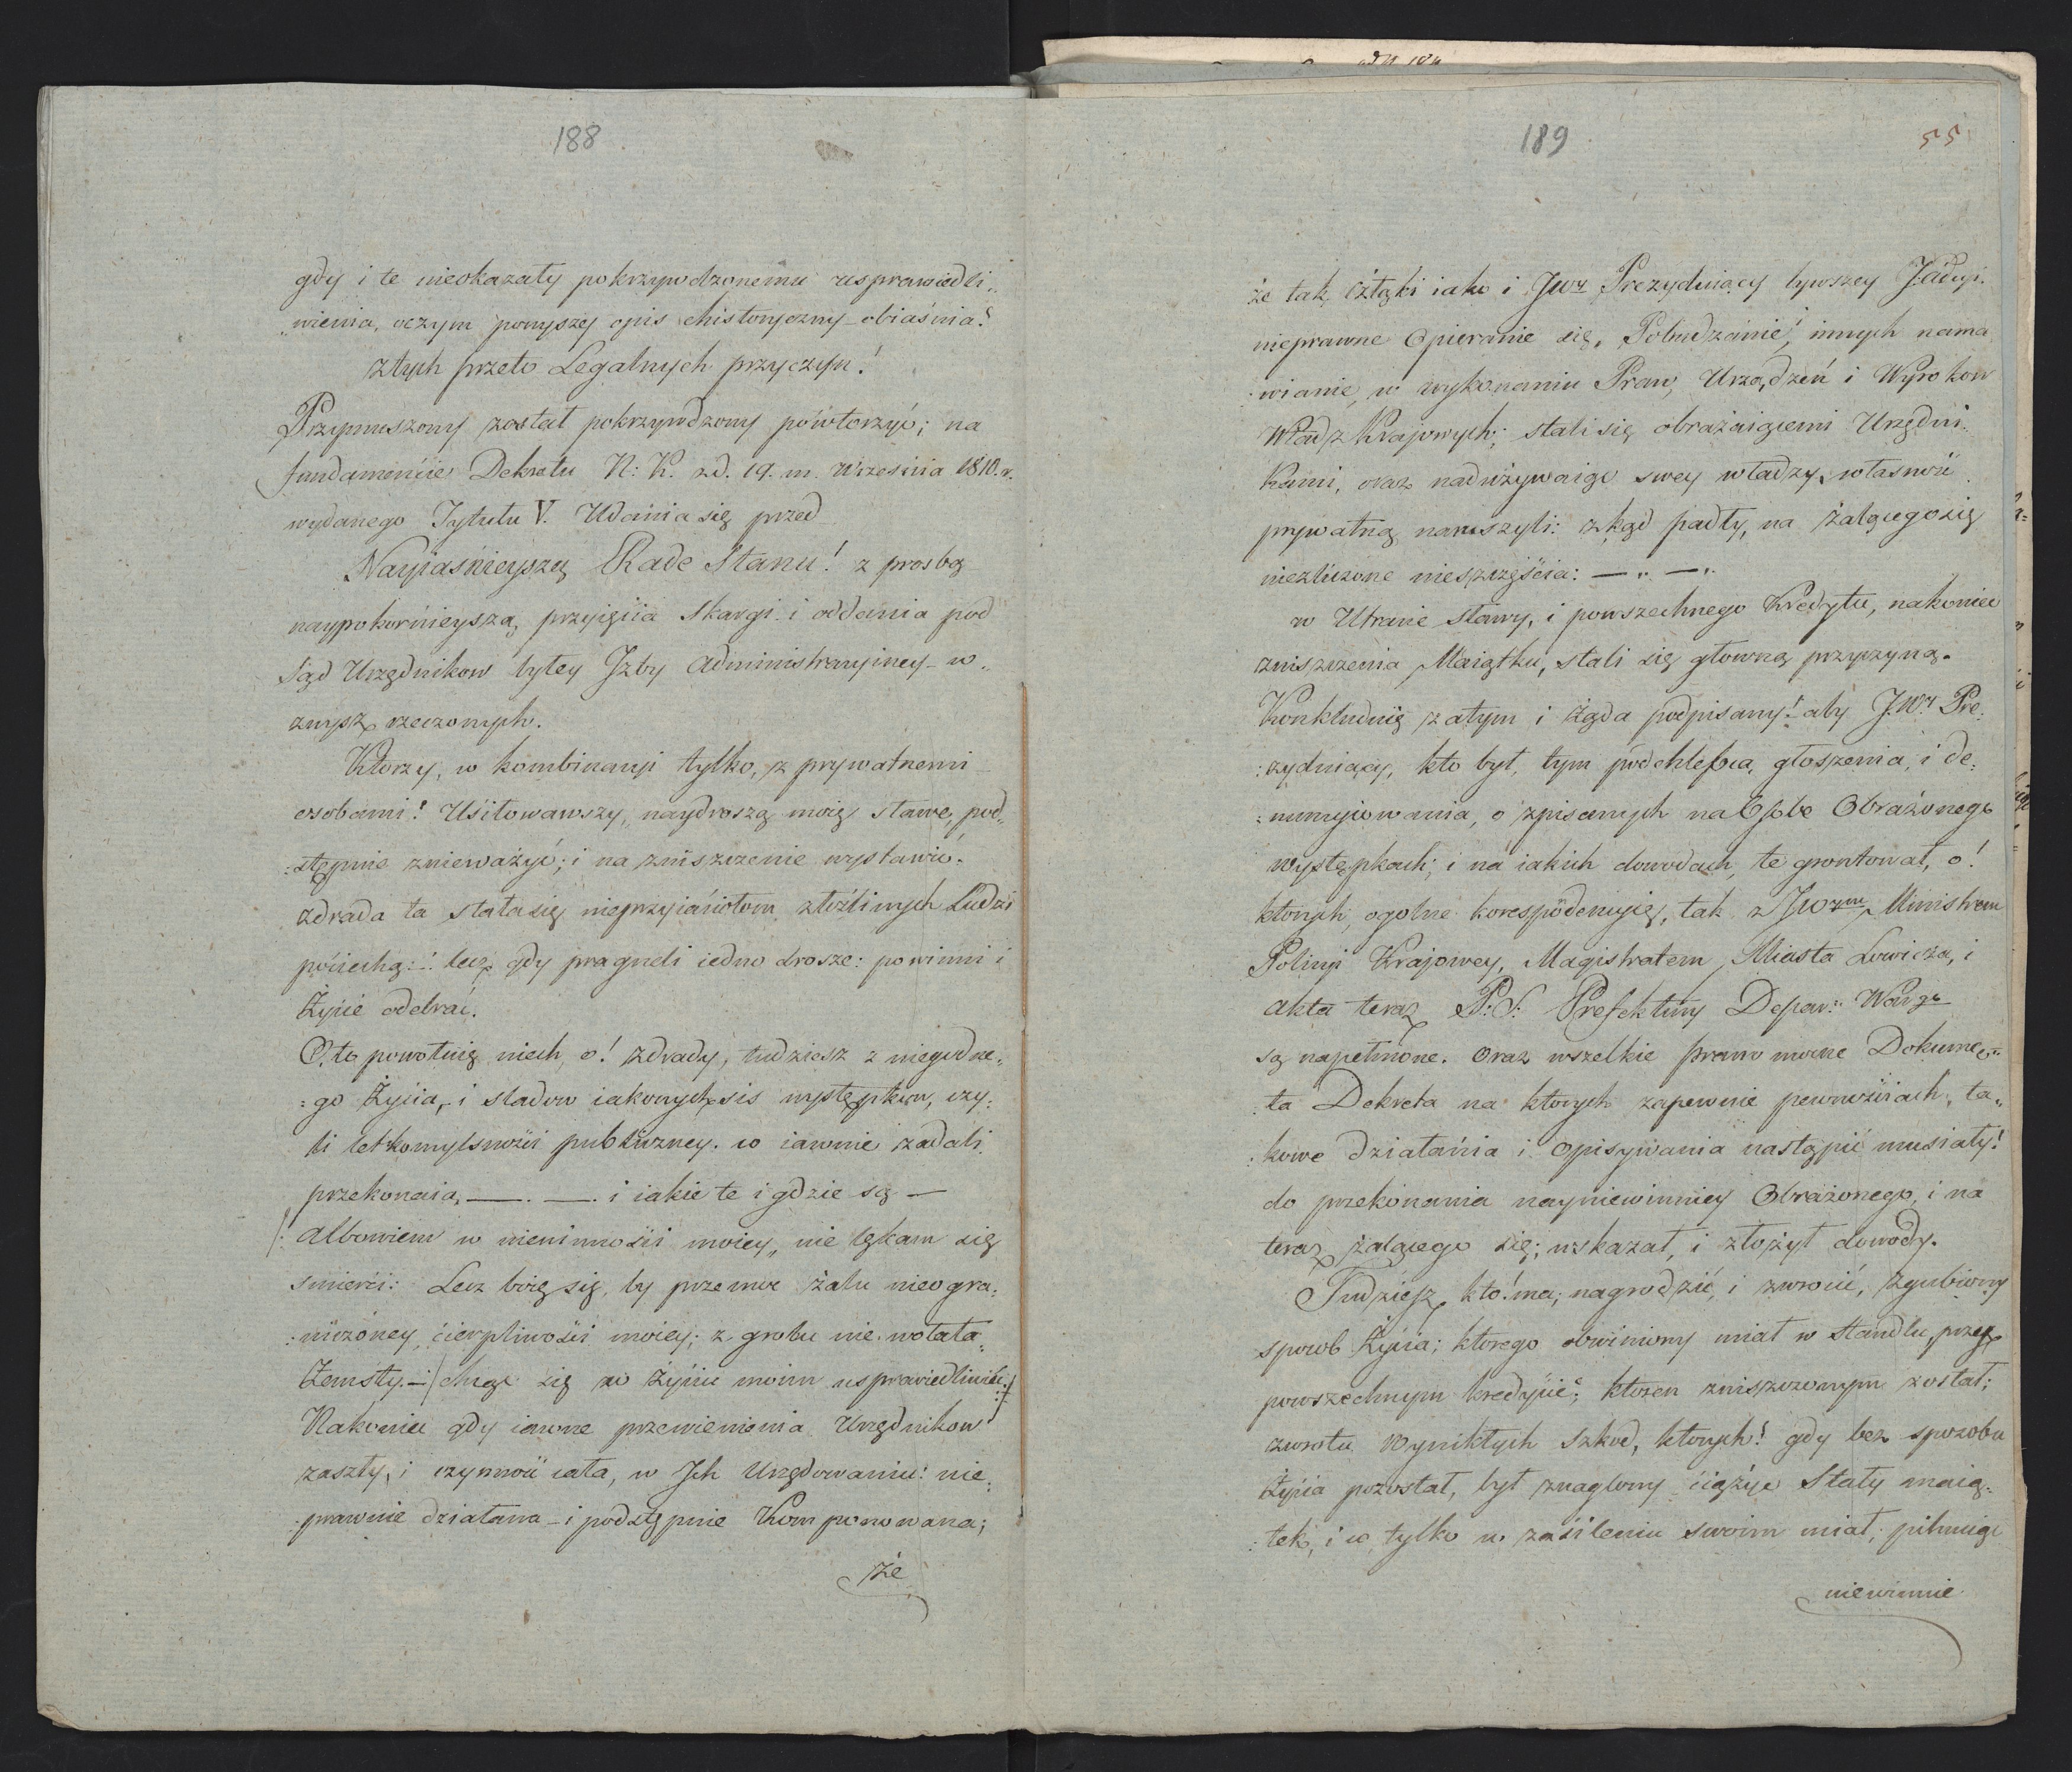 188
gdy i te nieokazały pokrzywdzonemu usprawiedli„
„wienia, oczym powyszey opis chistoryczny obiaśnia.
z tych przeto Legalnych przyczyn!
Przymuszony został pokrzywdzony powtorzyć; na
fundamencie Dekretu N: K. z d. 19. m. Wrzesnia 1810. r.
wydanego Tytułu V. Udania się przed
Nayiaśnieyszą Rade Stanu! z prosbą
naypokornieyszą, przyięcia Skargi i oddania pod
Sąd Urzędnikow byłey Izby Administracyiney w„
zwysz rzeczonych.
Ktorzy, w kombinacyi tylko, z prywatnemi
osobami! Usiłowawszy, naydroszą moię sławę, pod„
:stępnie znieważyć; i na zniszczenie wystawić.
zdrada ta stała się nieprzyiaciołom, złoźliwych Ludzi
pociechą: lecz gdy pragneli iedno drosze: powinni i
Życie odebrać.
O, to powołuię niech, o! zdrady, tudziesz z niegodne„
:go Życia, i sladow iakowychsis występkow, czy:
li letkomylsności publiczney. co iawnie zadali
przekonaia, —. —. i iakie te i gdzie są —
/: Albowiem w niewinności moiey, nie lękam się
smierci: Lecz boię się, by przemoc żalu nieogra:
:niczoney, cierpliwości moiey; z grobu nie wołała
Zemsty. :/ chcąc się w Życiu moim usprawiedliwić:
Nakoniec gdy iawne przewinienia Urzędnikow
zaszły, i czynność cała, w Ich Urzędowaniu: nie:
:prawnie działana i podstępnie Komponowana;
że
189
55
że tak członki iako i JWy Prezyduiący bywszey
nieprawne Opieranie się, Pobudzanie, innych nama
:wianie, w wykonaniu Praw, Urządzeń i Wyrokow
Władz Krajowych; stali się obrażaiącemi Urzędni:
kami, oraz nadużywaiąc swey władzy, własność
prywatną naruszyli: zkąd padły, na żalącego się
niezliczone nieszczęścia: —„ —„
w Utracie sławy, i powszechnego Kredytu, nakoniec
zniszczenia Maiątku, stali się głowną przyczyną.
Konkluduię zatym i żąda podpisany! aby J.Wy Pre:
:zyduiący, kto był, tym podchlebcą, głoszenia, i de:
:nuncyiowania, o spisanych na Osobe Obrażonego
występkach; i na iakich dowodach, te grontował, o!
ktorych, ogolne korespodencyię, tak z JWym Ministrem
Policyi Krajowey, Magistratem Miasta Lowicza, i
akta teraz P:S: Prefektury Depar: Warzgo
są napełnione. oraz wszelkie prawomocne Dokume„
:ta Dekreta na ktorych zapewnie pewnościach, ta„
:kowe działania i Opisywania nastąpić musiały!
do przekonania nayniewinniey Obrażonego, i na
teraz żalącego się; wskazał, i złożył dowody.
Tudziesz, kto! ma, nagrodzić, i zwrocić, zgubiony
sposob Życia; ktorego obwiniony miał w Handlu, przez
powszechnym kredycie; ktoren zniszczonym został;
zwrotu Wynikłych szkod, ktorych! gdy bez sposobu
Życia pozostał, był znaglony ciążyc Stały maią:
:tek, i co tylko w zasileniu swoim miał; pilnuiąc
niewinnie